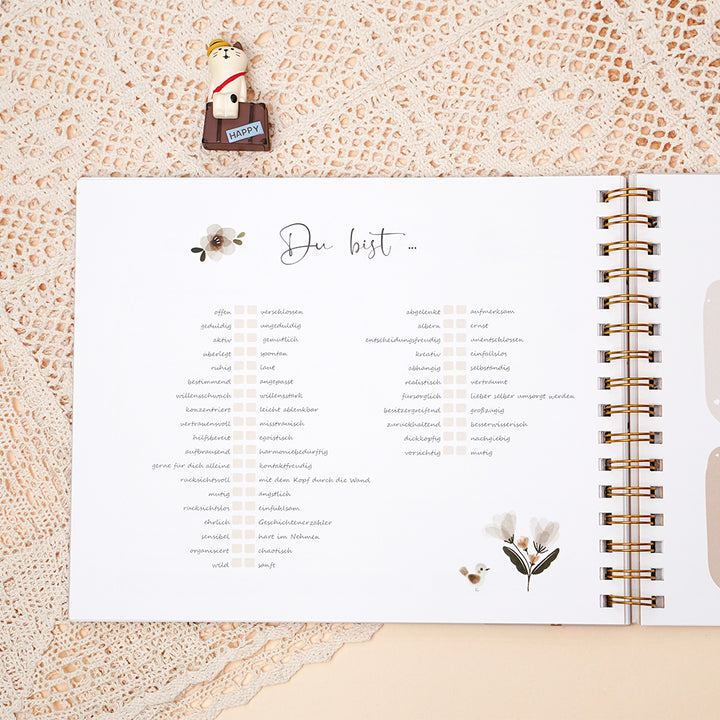 HAPPY
Du bist ...
offen verschlossen
geduldig ungeduldig
aktiv gemütlich
überlegt spontan
ruhig laut
bestimmend angepasst
willensschwach willensstark
konzentriert leicht ablenkbar
vertrauensvoll misstrauisch
hilfsbereit egoistisch
aufbrausend harmoniebedürftig
gerne für dich alleine kontaktfreudig
rücksichtsvoll mit dem Kopf durch die Wand
mutig ängstlich
rücksichtslos einfühlsam
ehrlich Geschichtenerzähler
sensibel hart im Nehmen
organisiert chaotisch
wild sanft
abgelenkt aufmerksam
albern ernst
entscheidungsfreudig unentschlossen
kreativ einfallslos
abhängig selbständig
realistisch verträumt
fürsorglich lieber selber umsorgt werden
besitzergreifend großzügig
zurückhaltend besserwisserisch
dickköpfig nachgiebig
vorsichtig mutig